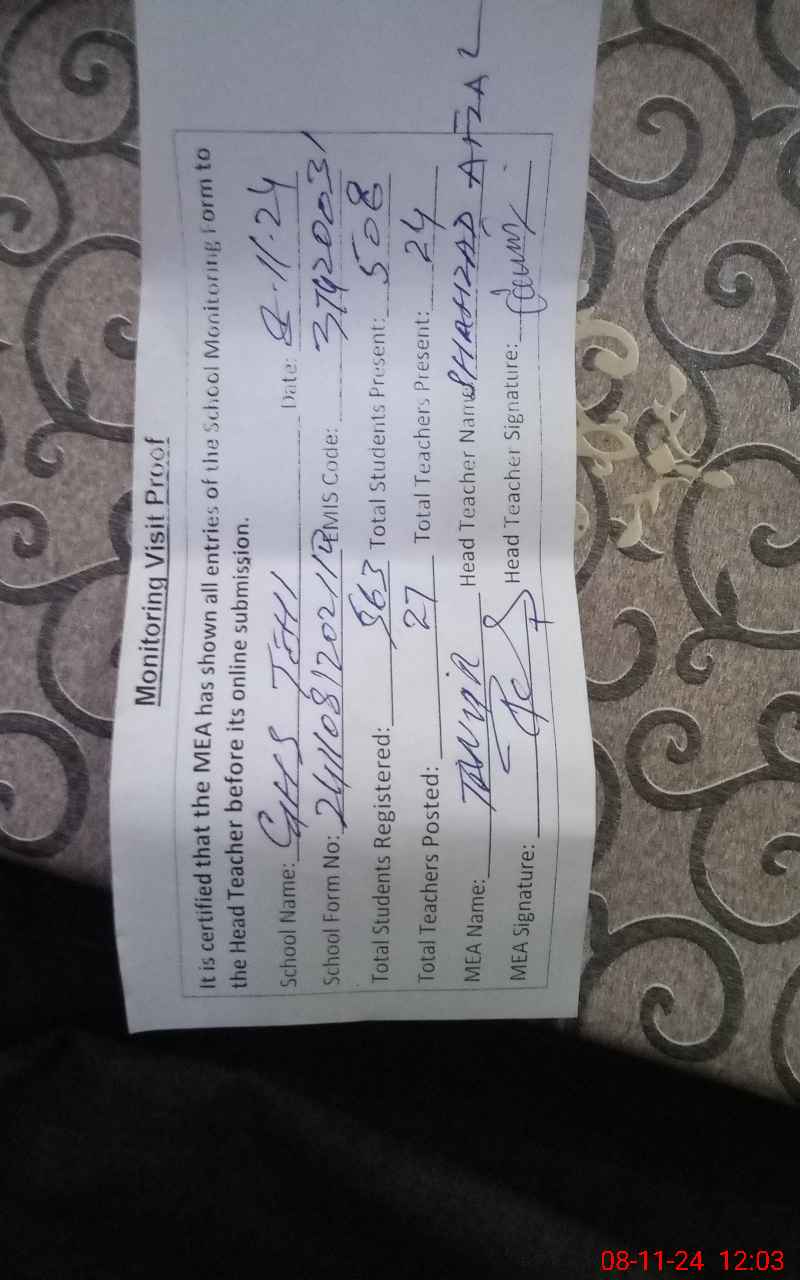 Monitoring Visit Proof
It is certified that the MEA has shown all entries of the School Monitoring Form to
the Head Teacher before its online submission.
School Name: GHS Date: 8-11-24
School Form No: EMIS Code: 37420031
Total Students Registered: 563 Total Students Present: 508
Total Teachers Posted: 27 Total Teachers Present: 24
MEA Name: Head Teacher Name: SHAHZAD AFZAL
MEA Signature: Head Teacher Signature:
08-11-24 12:03